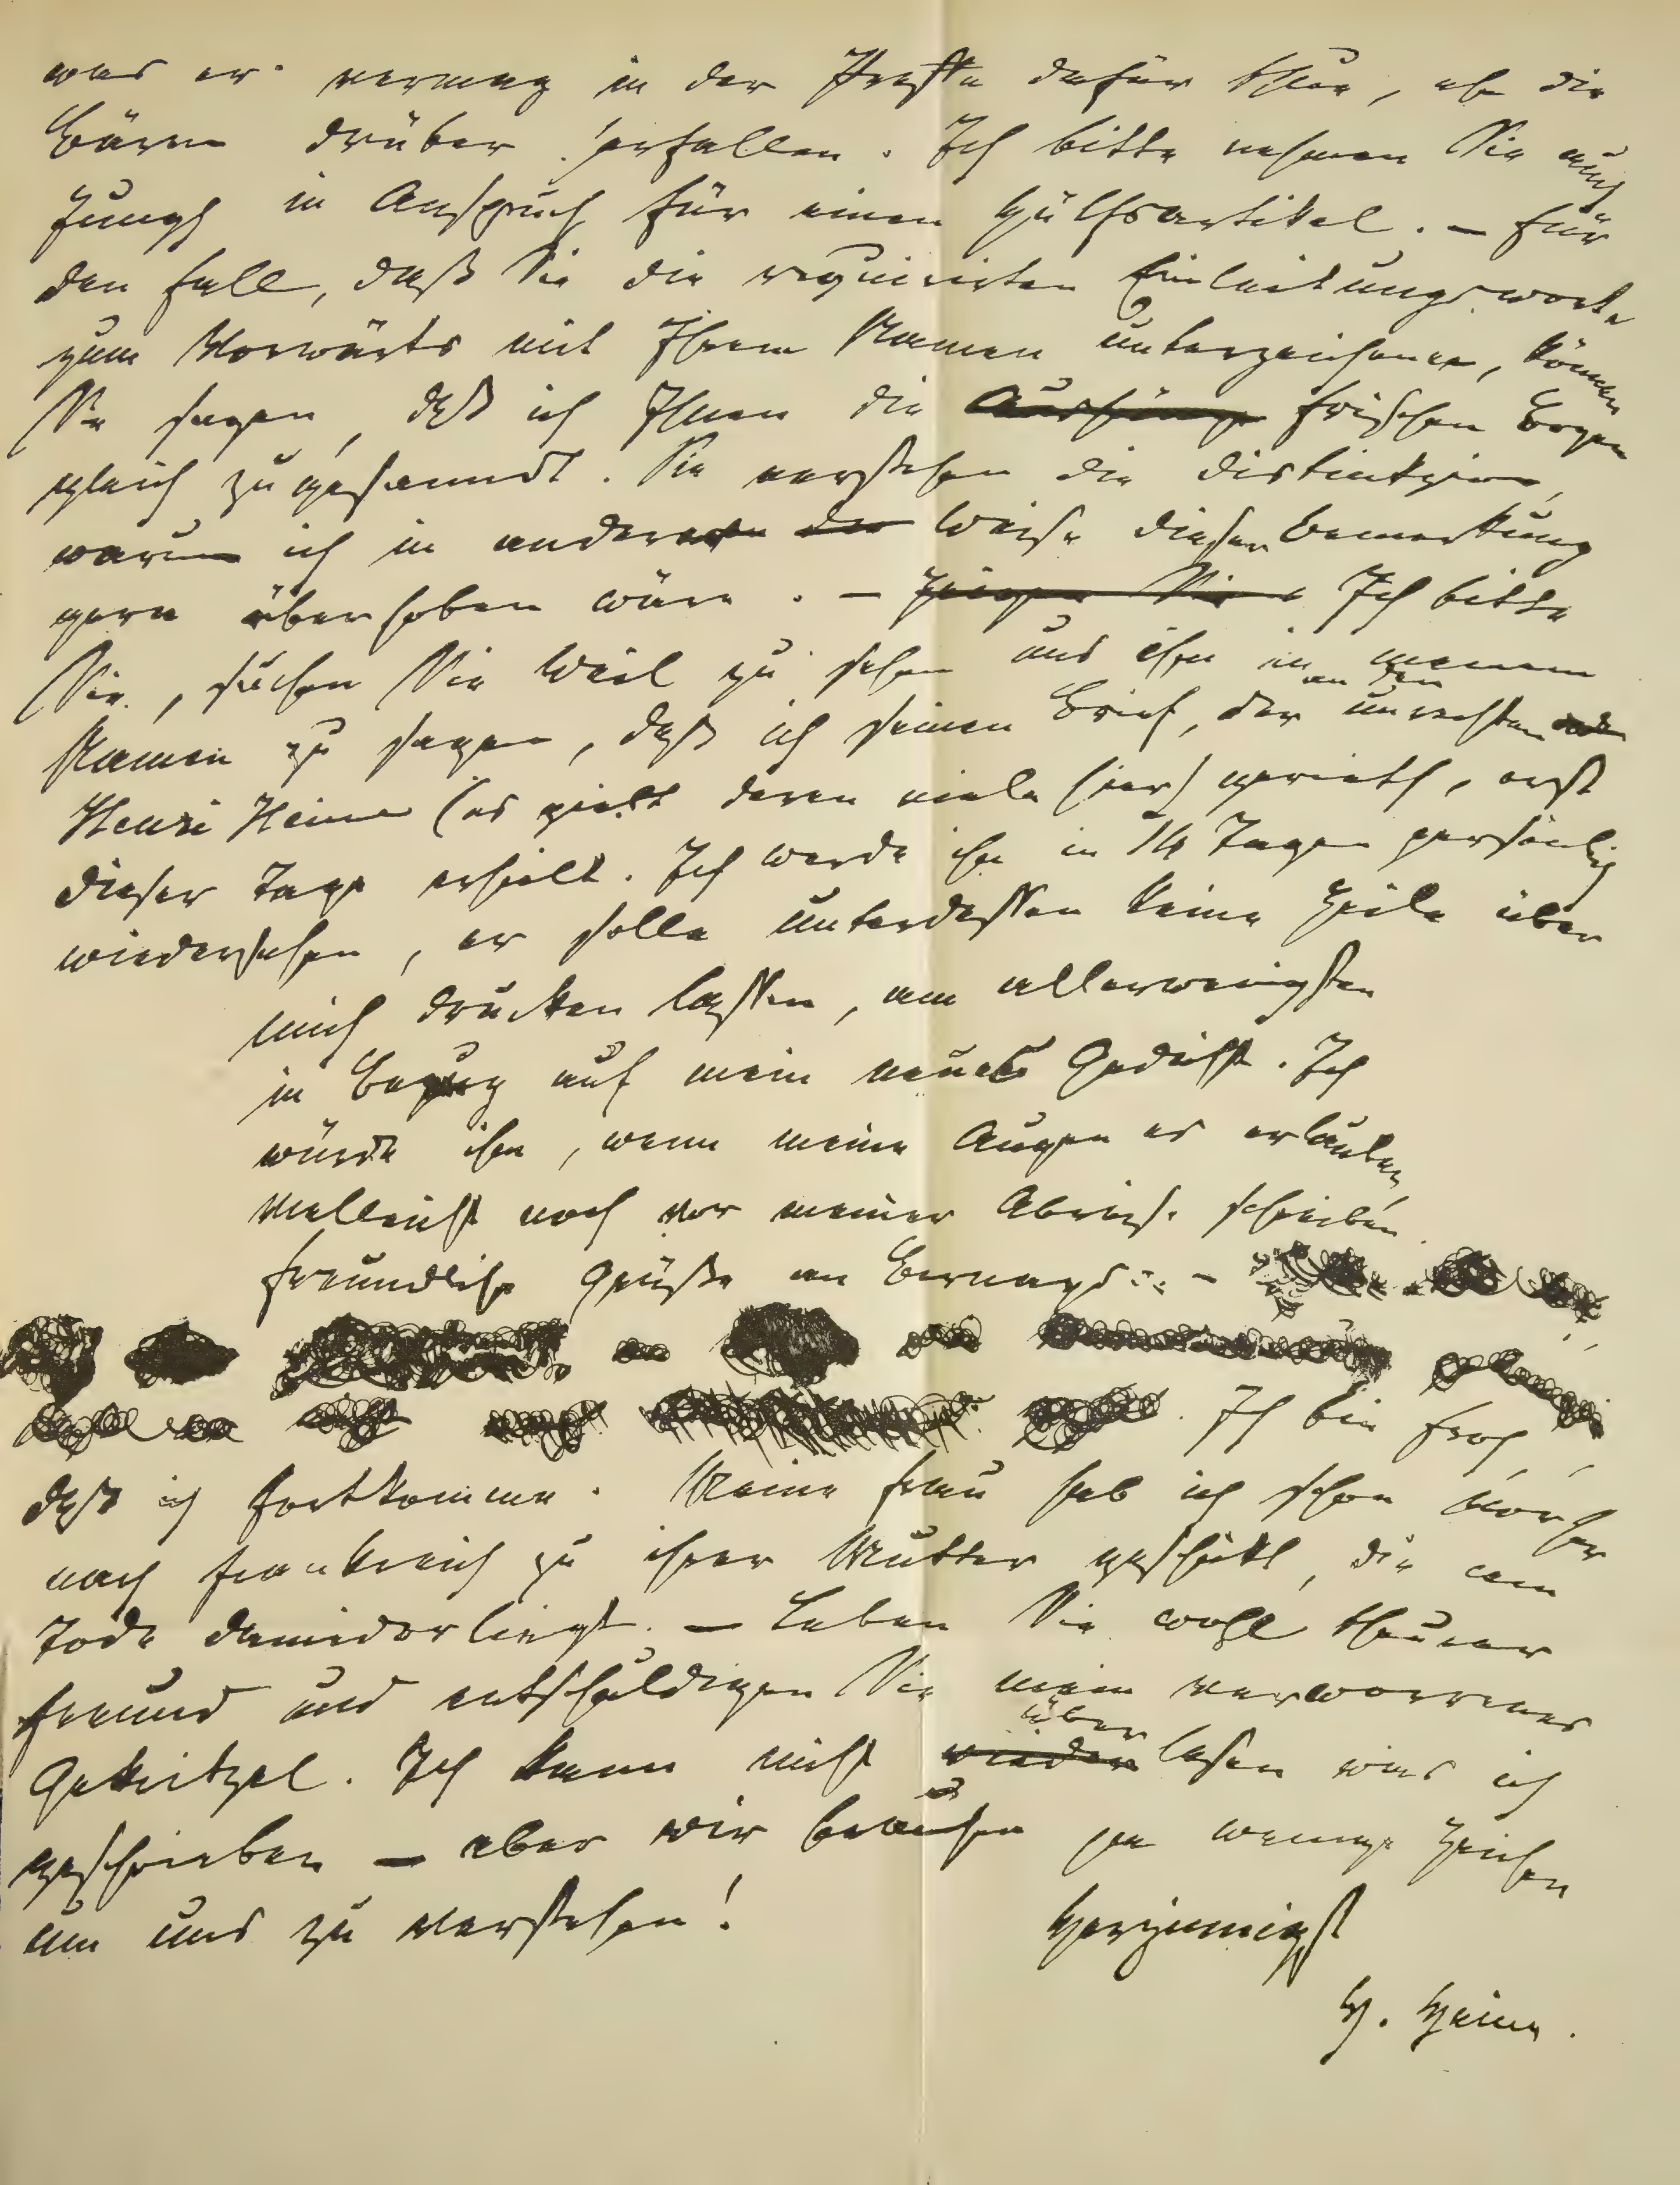 was er vermag in der Presse dafür thue, ehe die
Bären drüber herfallen. Ich bitte nehmen Sie auch
Jungh in Anspruch für einen Hülfsartikel. — Für
den Fall, daß Sie die requirirten Einleitungsworte
zum Vorwärts mit Ihrem Namen unterzeichnen, können
Sie sagen, daß ich Ihnen die Aushänge frischen Bogen
gleich zugesanndt. Sie verstehen die Distinkzion,
warum ich in anderer der Weise dieser Bemerkung
gern überhoben wäre. — Zeigen Sie Ich bitte
Sie, suchen Sie Weil zu sehen und ihm in meinem
Namen zu sagen, daß ich seinen Brief, der an den unrechten
Henri Heine (es giebt deren viele hier) gerieth, erst
dieser Tage erhielt. Ich werde ihn in 14 Tagen persönlich
wiedersehen, er solle unterdessen keine Zeile über
mich drucken lassen, am allerwenigsten
in Bezug auf mein neues Gedicht. Ich
würde ihm, wenn meine Augen es erlauben,
vielleicht noch vor meiner Abreise schreiben.
Freundliche Grüße an Bernays. —
Ich bin froh,
daß ich fortkomme. Meine Frau hab ich schon vorher
nach Frankreich zu ihrer Mutter geschikt, die am
Tode daniederliegt. — Leben Sie wohl theurer
Freund und entschuldigen Sie mein verworrenes
Gekritzel. Ich kann nicht wieder überlesen was ich
geschrieben — aber wir brauchen ja wenige Zeichen
um uns zu verstehen!
Herzinnigst
H. Heine.